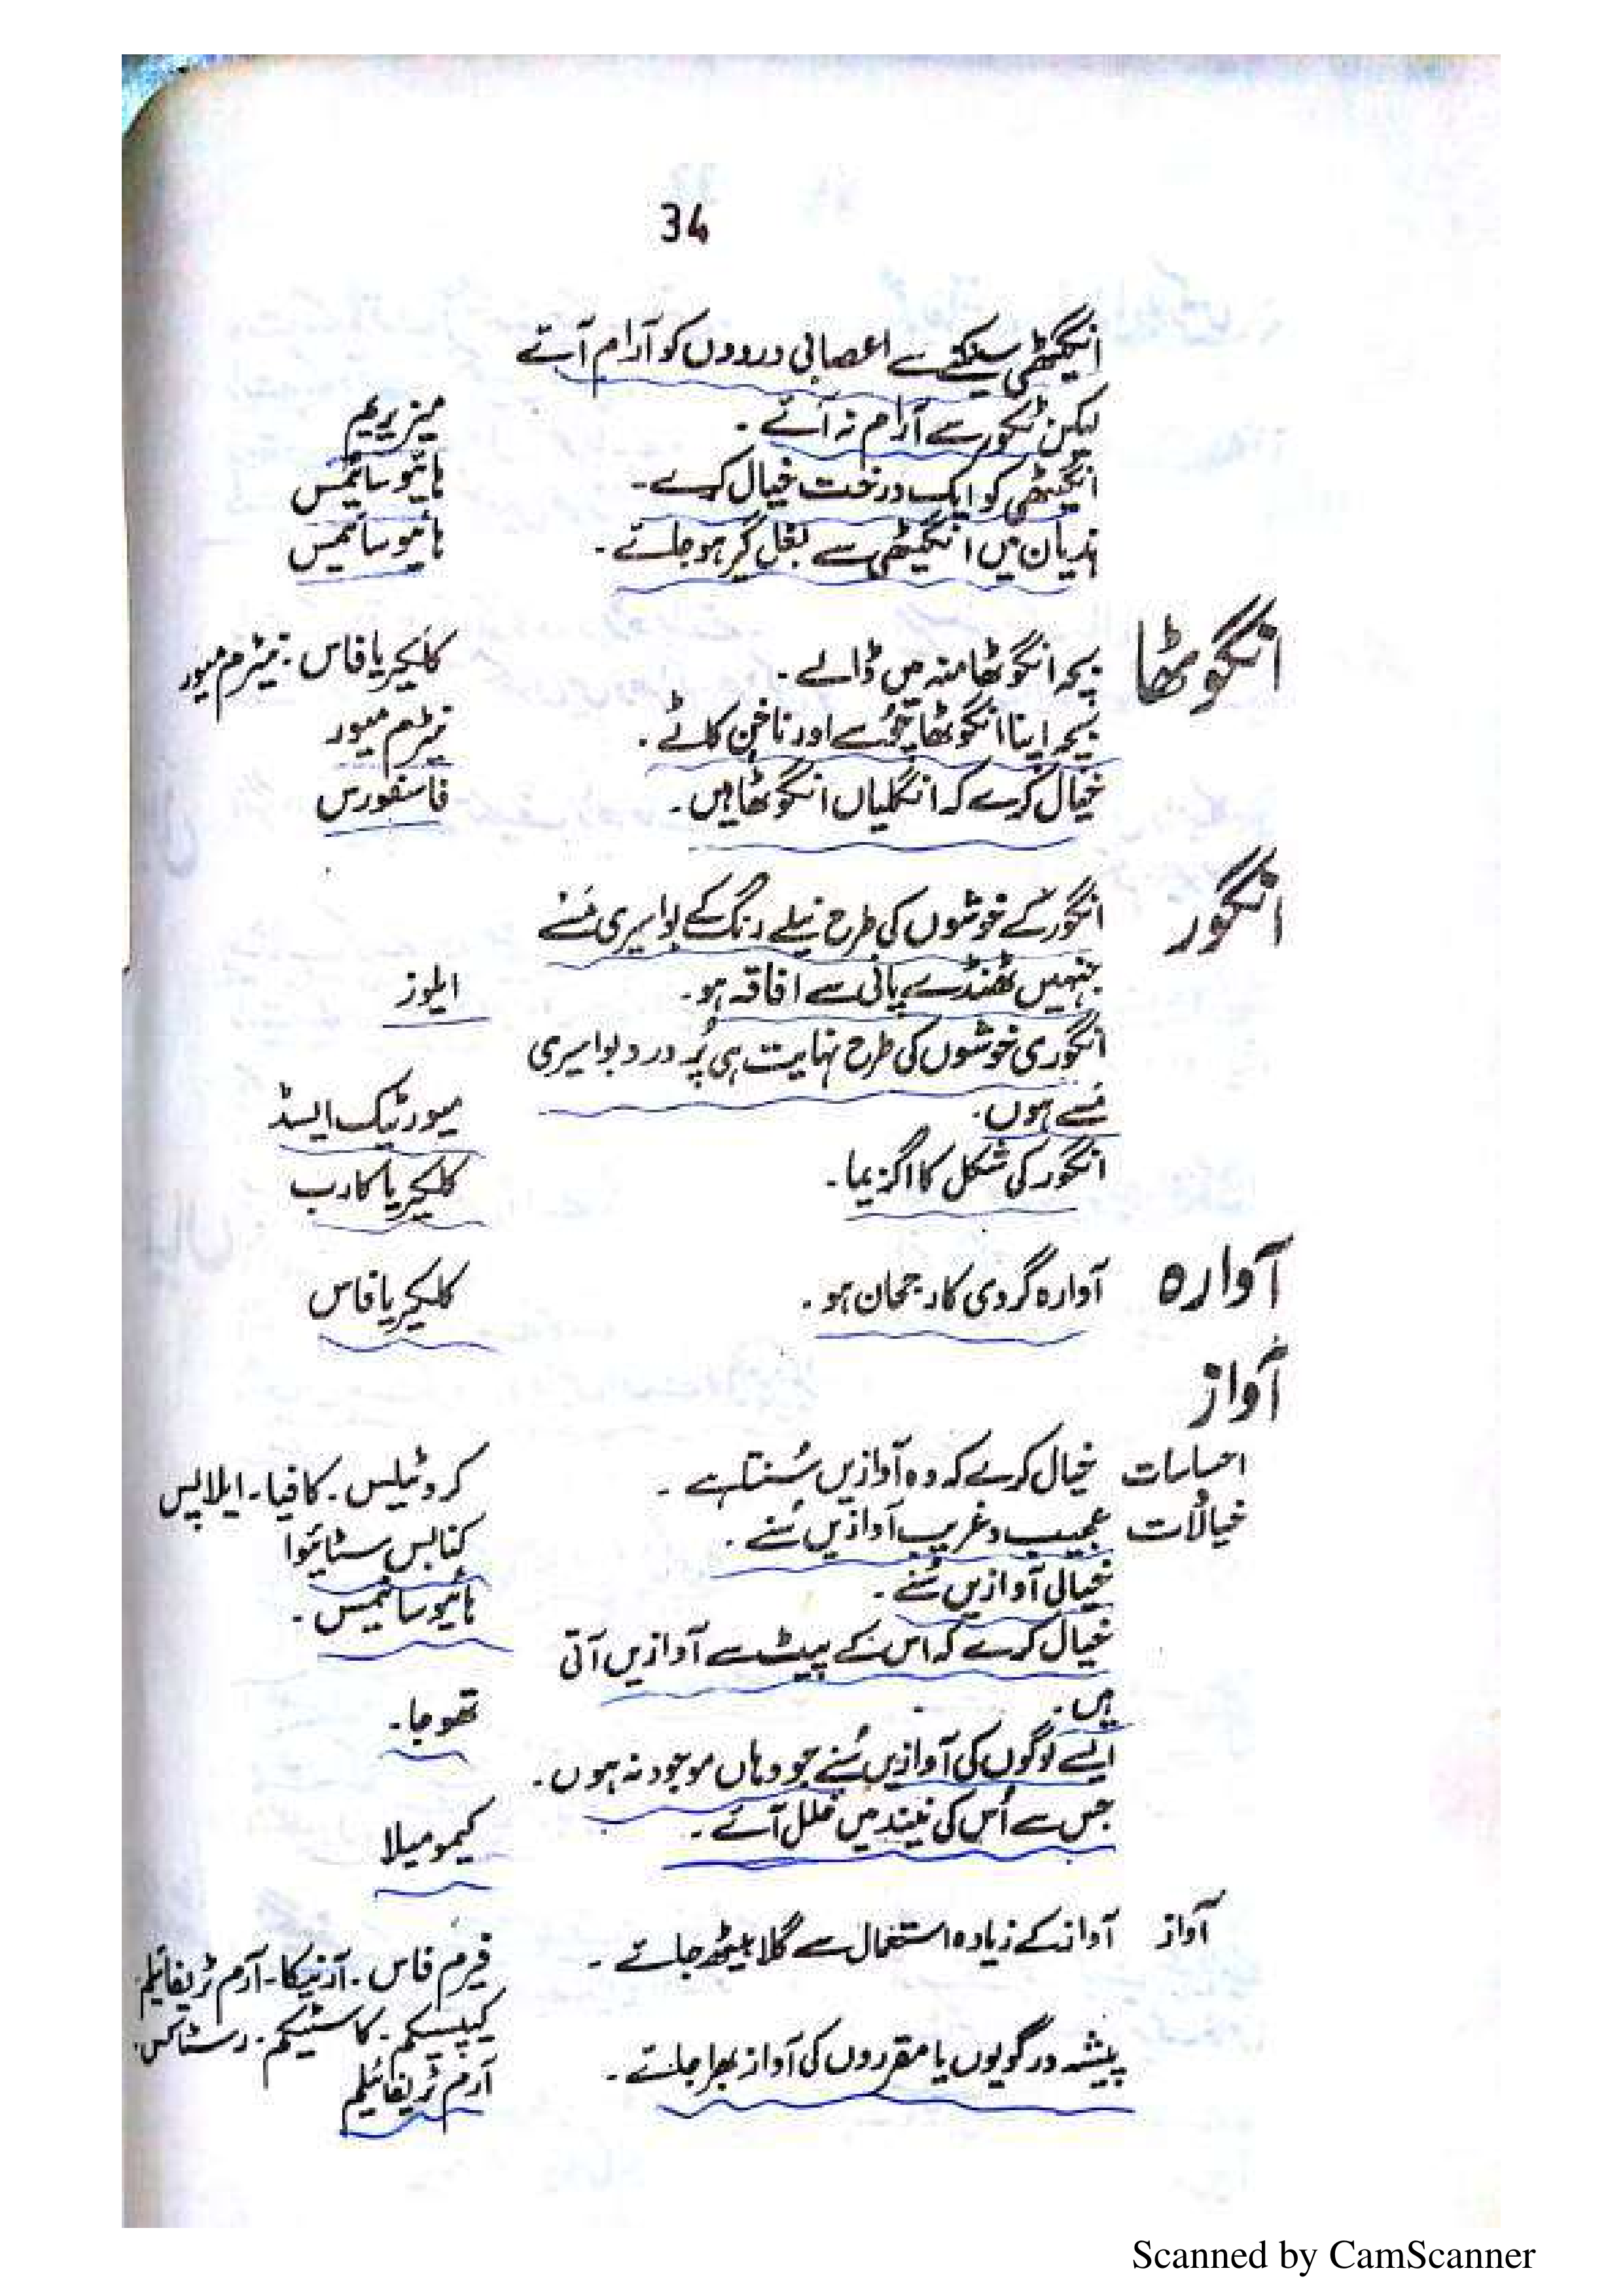 34
انگیٹھی سیکنے سے اعصابی دردوں کو آرام آئے
لیکن ٹکور سے آرام نہ آئے۔ میزیریم
انگیٹھی کو ایک درخت خیال کرے۔ ہائیوسائمس
ہذیان میں انگیٹھی سے بغل گیر ہو جائے۔ ہائیوسائمس
انگوٹھا بچہ انگوٹھا منہ میں ڈالے۔ کلکیریا فاس۔ نیٹرم میور
بچہ اپنا انگوٹھا چُوسے اور ناخن کاٹے۔ نیٹرم میور
خیال کرے کہ انگلیاں انگوٹھا ہیں۔ فاسفورس
انگور انگور کے خوشوں کی طرح نیلے رنگ کے بواسیری مَسے
جنہیں ٹھنڈے پانی سے افاقہ ہو۔ ایلوز
انگوری خوشوں کی طرح نہایت ہی پُر درد بواسیری
مَسے ہوں۔ میورٹیک ایسڈ
انگور کی شکل کا اگزیما۔ کلکیریا کارب
آوارہ آوارہ گردی کا رجحان ہو۔ کلکیریا فاس
آواز
احساسات خیال کرے کہ وہ آوازیں سُنتا ہے۔ کروٹیلس۔ کافیا۔ ایلاپس
خیالات عجیب و غریب آوازیں سُنے۔ کنابس سٹائیوا
خیالی آوازیں سُنے۔ ہائیوسائمس۔
خیال کرے کہ اس کے پیٹ سے آوازیں آتی
ہیں۔ تھوجا۔
ایسے لوگوں کی آوازیں سُنے جو وہاں موجود نہ ہوں۔
جس سے اُس کی نیند میں خلل آئے۔ کیمومیلا
آواز آواز کے زیادہ استعمال سے گلا بیٹھ جائے۔ فیرم فاس۔ آرنیکا۔ آرم ٹریفائیلم۔
کیپسیکم۔ کاسٹیکم۔ رسٹاکس۔
پیشہ ور گویوں یا مقرروں کی آواز بھرا جائے۔ آرم ٹریفائیلم
Scanned by CamScanner